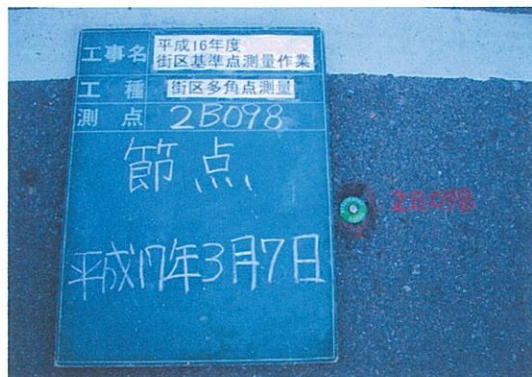 工事名 平成16年度
街区基準点測量作業
工種 街区多角点測量
測点 2B098
節点
平成17年3月7日
2B098